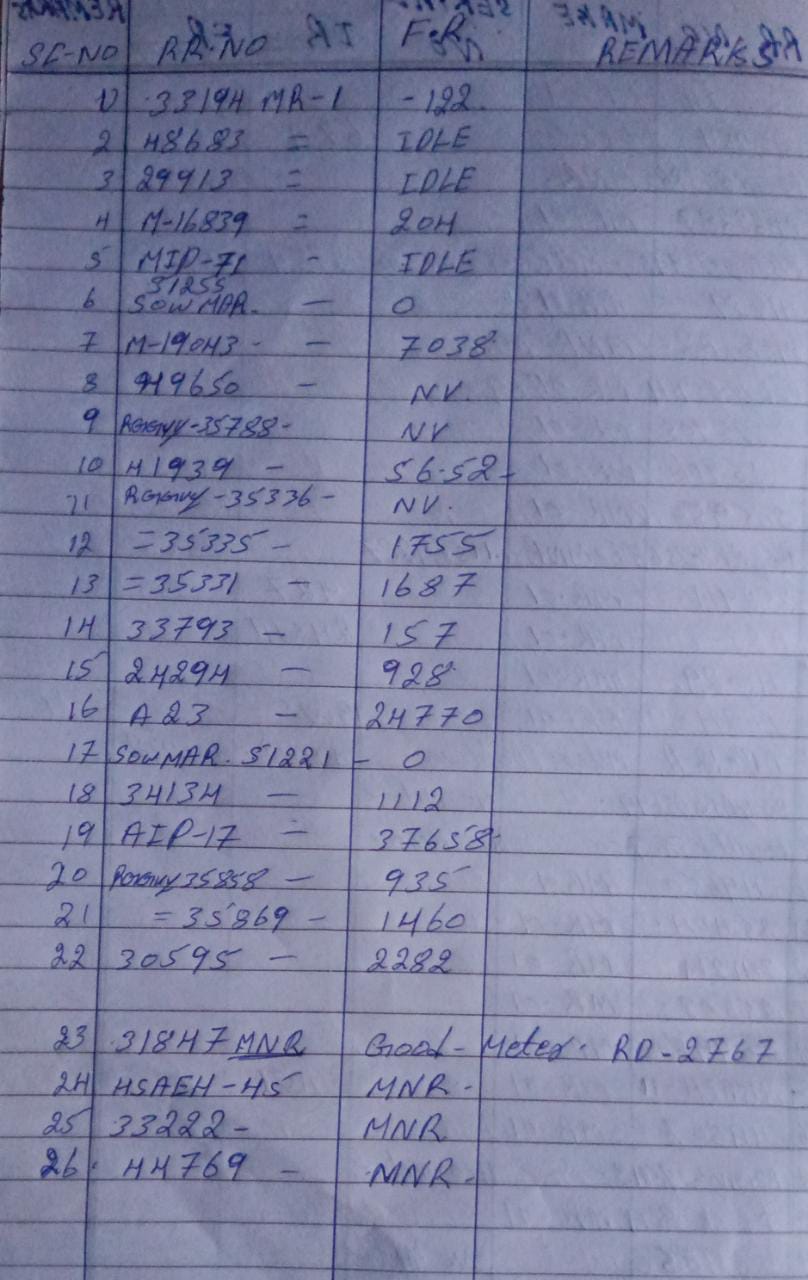 SL-NO RR.NO F.R REMARKS
1) 33194 MR-1 -122.
2 48683 = IDLE
3 29913 = IDLE
4 M-16839 = 204
5 MIP-71 - IDLE
51255
6 SOWMAR. - 0
7 M-19043 - - 7038
8 49650 - NV.
9 Regency-35788- NV
10 41939 - 56.52
11 Regency-35336- NV.
12 =35335- 1755
13 =35331 - 1687
14 33793 - 157
15 24294 - 928
16 A23 - 24770
17 SOWMAR. 51221 - 0
18 34134 - 1112
19 AIP-17 = 37658
20 Regency 35858 - 935
21 = 35869 - 1460
22 30595 - 2282
23 31847 MNR Good - Meter. RD-2767
24 HSAEH-45 MNR-
25 33222- MNR
26. 44769 - MNR-